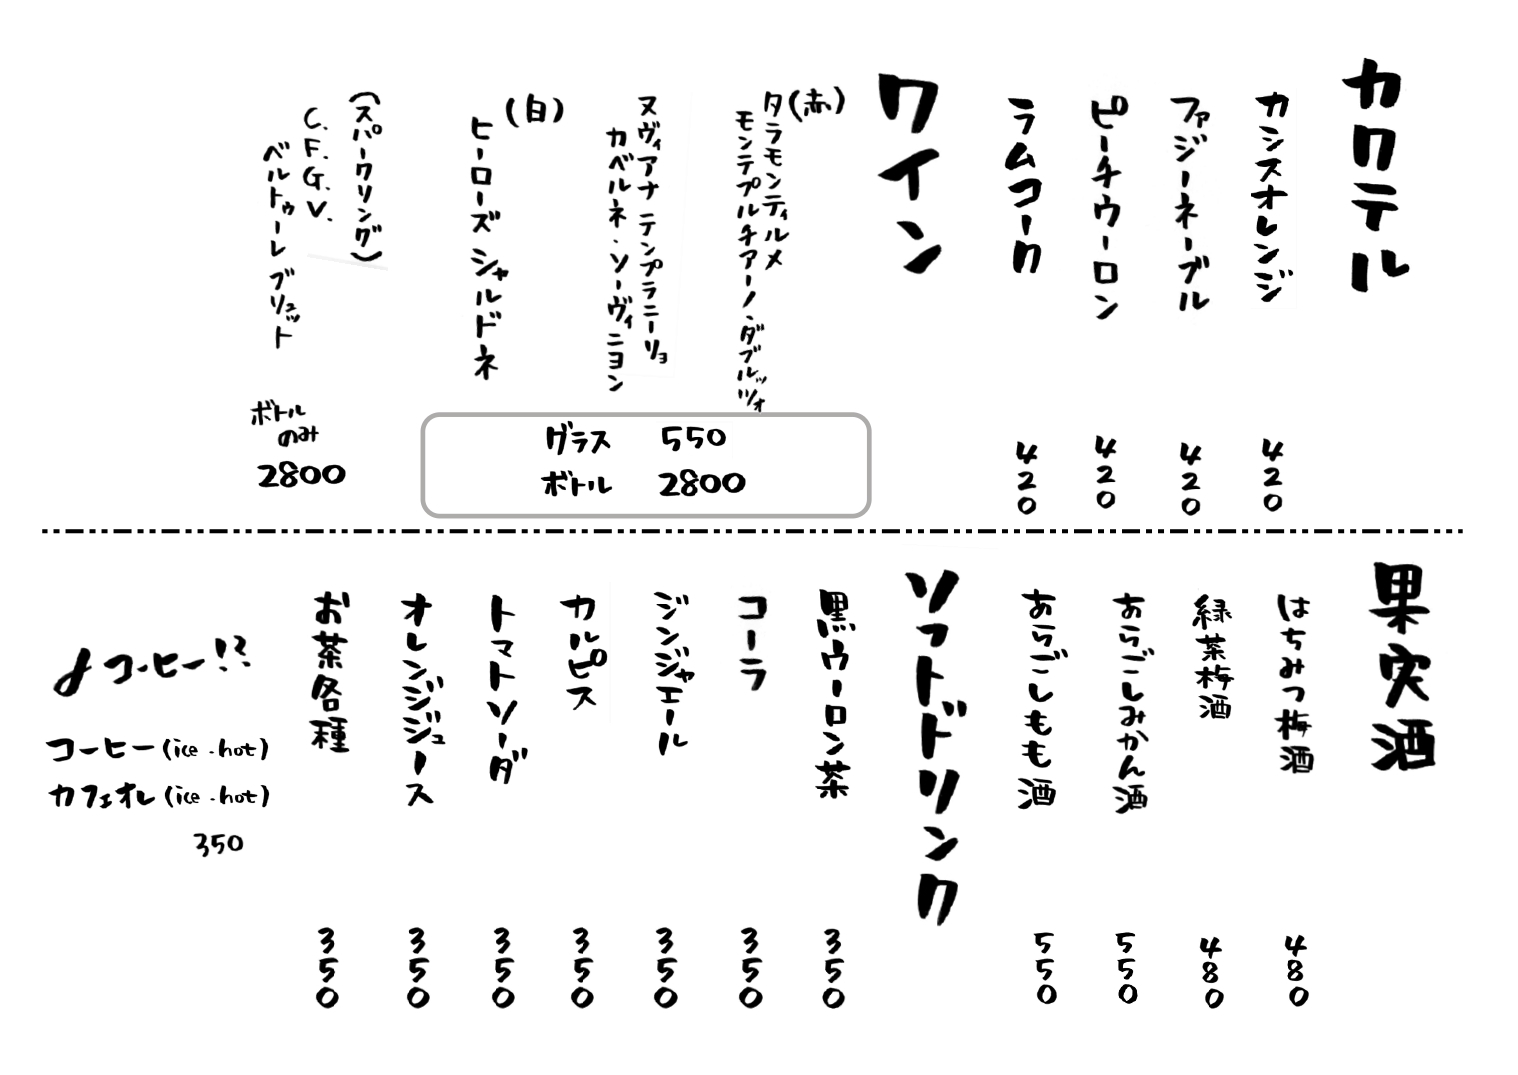 カクテル
カシスオレンジ
420
ファジーネーブル
420
ピーチウーロン
420
ラムコーク
420
ワイン
(赤)
タラモンティルメ
モンテプルチアーノ・ダブルッツォ
ヌヴィアナ テンプラニーリョ
カベルネ・ソーヴィニヨン
(白)
ヒーローズ シャルドネ
グラス 550
ボトル 2800
(スパークリング)
C.F.G.V.
ベルトゥーレ ブリュット
ボトル
のみ
2800
果実酒
はちみつ梅酒
480
緑茶梅酒
480
あらごしみかん酒
550
あらごしもも酒
550
ソフトドリンク
黒ウーロン茶
350
コーラ
350
ジンジャエール
350
カルピス
350
トマトソーダ
350
オレンジジュース
350
お茶各種
350
コーヒー!?
コーヒー(ice・hot)
カフェオレ(ice・hot)
350